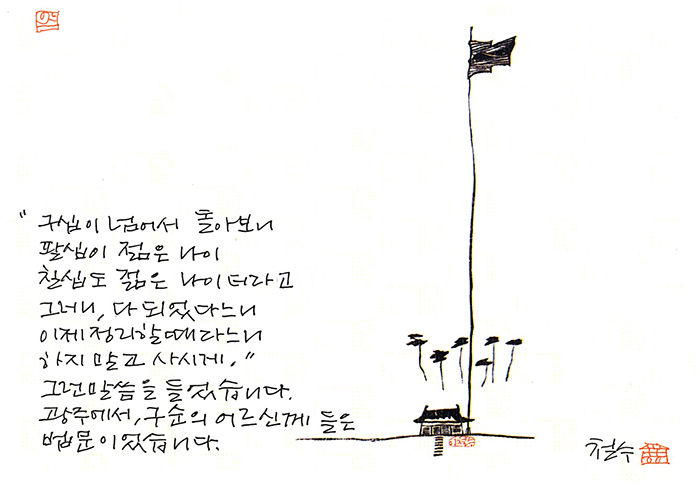 "구십이 넘어서 돌아보니
팔십이 젊은 나이
칠십도 젊은 나이더라고
그러니, 다 되었다느니
이제 정리할 때라느니
하지 말고 사시게."
그런 말씀을 들었습니다.
광주에서, 구순의 어르신께 들은
법문이었습니다.
철수